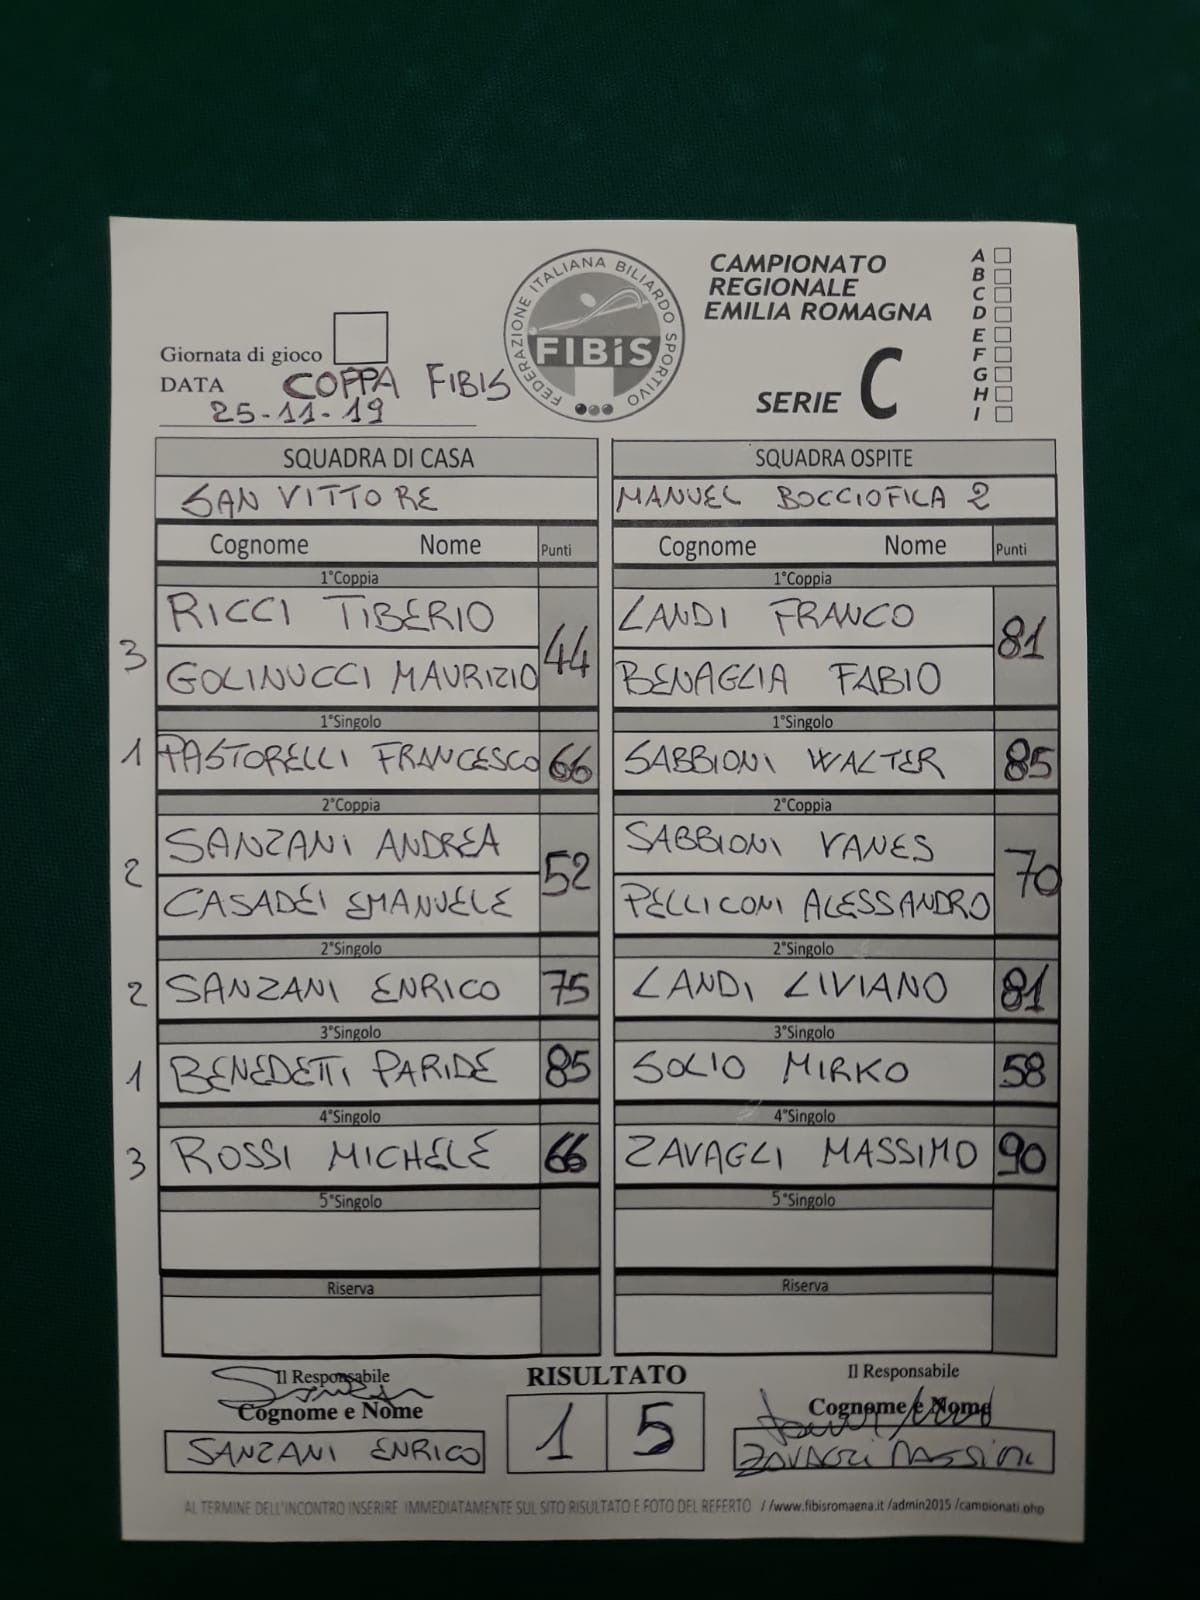 CAMPIONATO
REGIONALE
EMILIA ROMAGNA
SERIE C
A
B
C
D
E
F
G
H
I
FEDERAZIONE ITALIANA BILIARDO SPORTIVO
FIBiS
Giornata di gioco
DATA COPPA FIBIS
25-11-19
SQUADRA DI CASA SQUADRA OSPITE
SAN VITTORE MANUEL BOCCIOFILA 2
Cognome Nome Punti Cognome Nome Punti
1°Coppia 1°Coppia
RICCI TIBERIO LANDI FRANCO
3 44 81
GOLINUCCI MAURIZIO BENAGLIA FABIO
1°Singolo 1°Singolo
1 PASTORELLI FRANCESCO 66 SABBIONI WALTER 85
2°Coppia 2°Coppia
SANZANI ANDREA SABBIONI VANES
2 52 70
CASADEI EMANUELE PELLICONI ALESSANDRO
2°Singolo 2°Singolo
2 SANZANI ENRICO 75 LANDI LIVIANO 81
3°Singolo 3°Singolo
1 BENEDETTI PARIDE 85 SOLIO MIRKO 58
4°Singolo 4°Singolo
3 ROSSI MICHELE 66 ZAVAGLI MASSIMO 90
5°Singolo 5°Singolo
Riserva Riserva
Il Responsabile RISULTATO Il Responsabile
Cognome e Nome 1 5 Cognome e Nome
SANZANI ENRICO ZAVAGLI MASSIMO
AL TERMINE DELL'INCONTRO INSERIRE IMMEDIATAMENTE SUL SITO RISULTATO E FOTO DEL REFERTO //www.fibisromagna.it /admin2015 /campionati.php